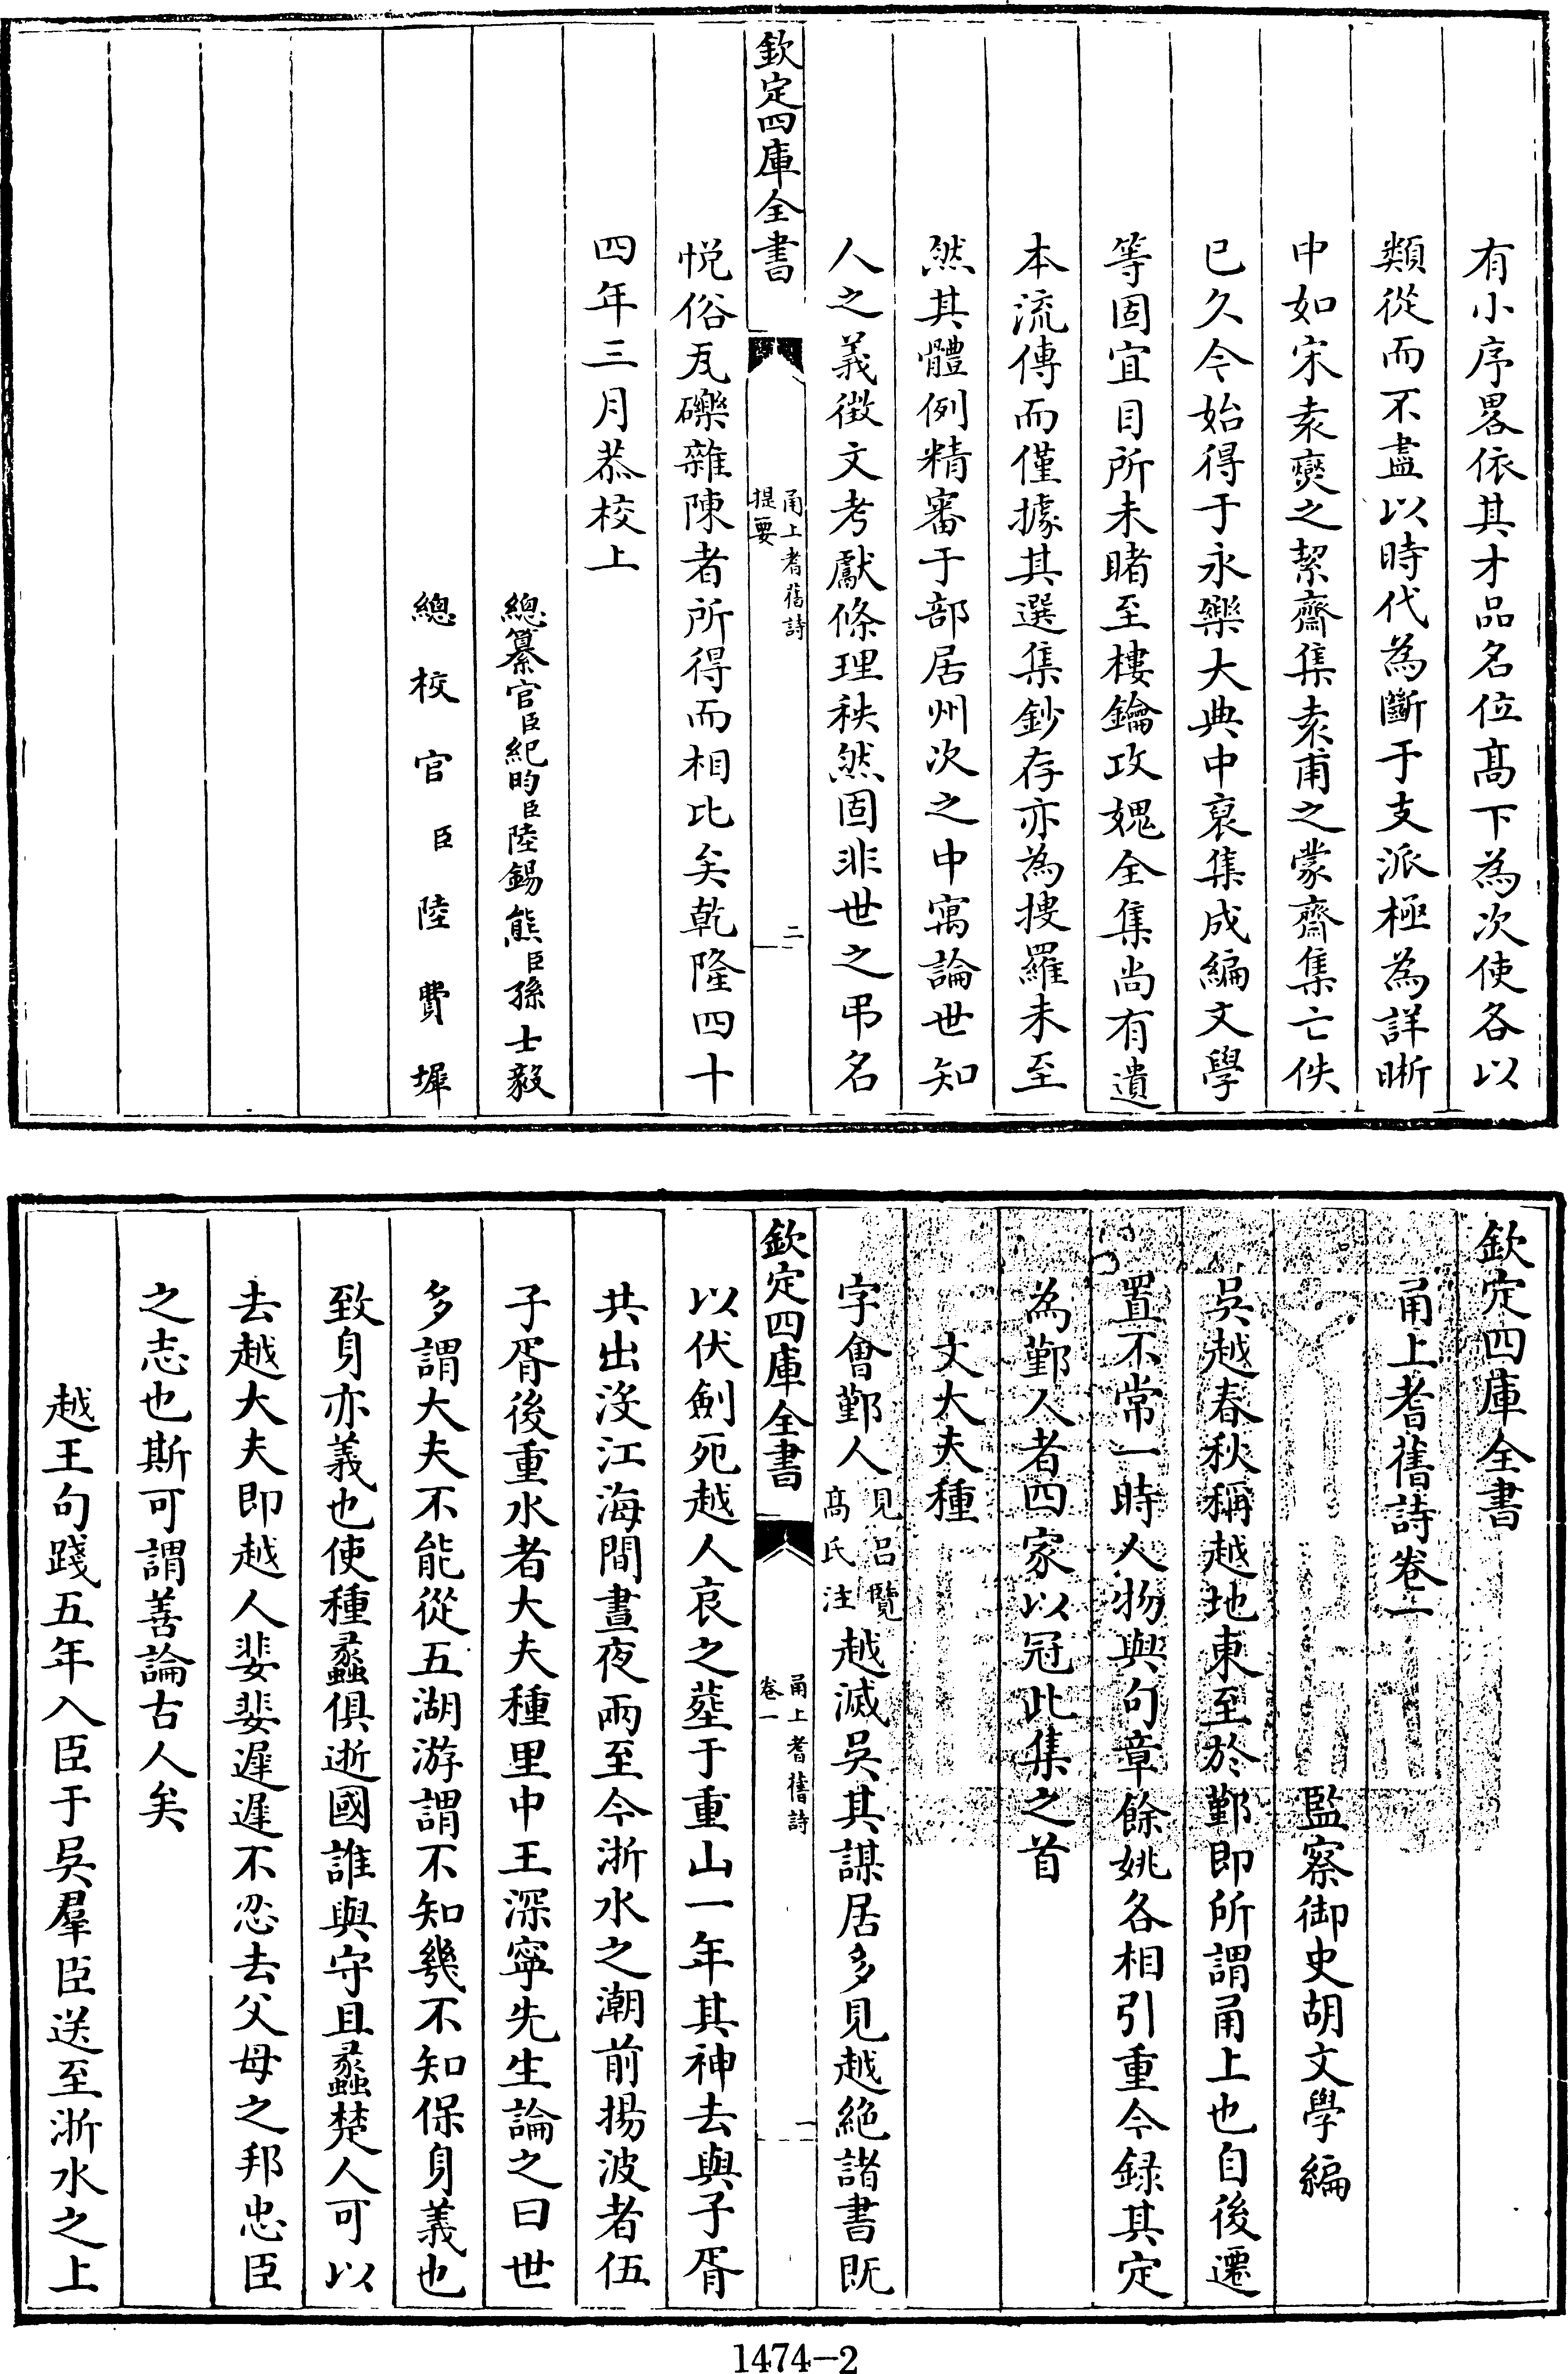 有小序畧依其才品名位髙下為次使各以
類從而不盡以時代為斷于支派極為詳晰
中如宋袁爕之絜齋集袁甫之蒙齋集亡佚
已久今始得于永樂大典中裒集成編文學
等固宜目所未睹至樓鑰攻媿全集尚有遺
本流傳而僅據其選集鈔存亦為捜羅未至
然其體例精審于部居州次之中寓論世知
人之義徴文考獻條理秩然固非世之弔名
欽定四庫全書
甬上耆舊詩
提要
二
悦俗瓦礫雜陳者所得而相比矣乾隆四十
四年三月恭校上
總纂官臣紀昀臣陸錫熊臣孫士毅
總校官臣陸費墀
欽定四庫全書
甬上耆舊詩卷一
監察御史胡文學編
吳越春秋稱越地東至於鄞即所謂甬上也自後遷
置不常一時人物與句章餘姚各相引重今録其定
為鄞人者四家以冠此集之首
文大夫種
字㑹鄞人見呂覽髙氏注越滅吳其謀居多見越絶諸書既
欽定四庫全書
甬上耆舊詩
卷一
一
以伏劍死越人哀之塟于重山一年其神去與子胥
共出没江海間晝夜兩至今浙水之潮前揚波者伍
子胥後重水者大夫種里中王深寧先生論之曰世
多謂大夫不能從五湖游謂不知幾不知保身義也
致身亦義也使種蠡俱逝國誰與守且蠡楚人可以
去越大夫即越人婓婓遲遲不忍去父母之邦忠臣
之志也斯可謂善論古人矣
越王句踐五年入臣于吳羣臣送至浙水之上
1474-2